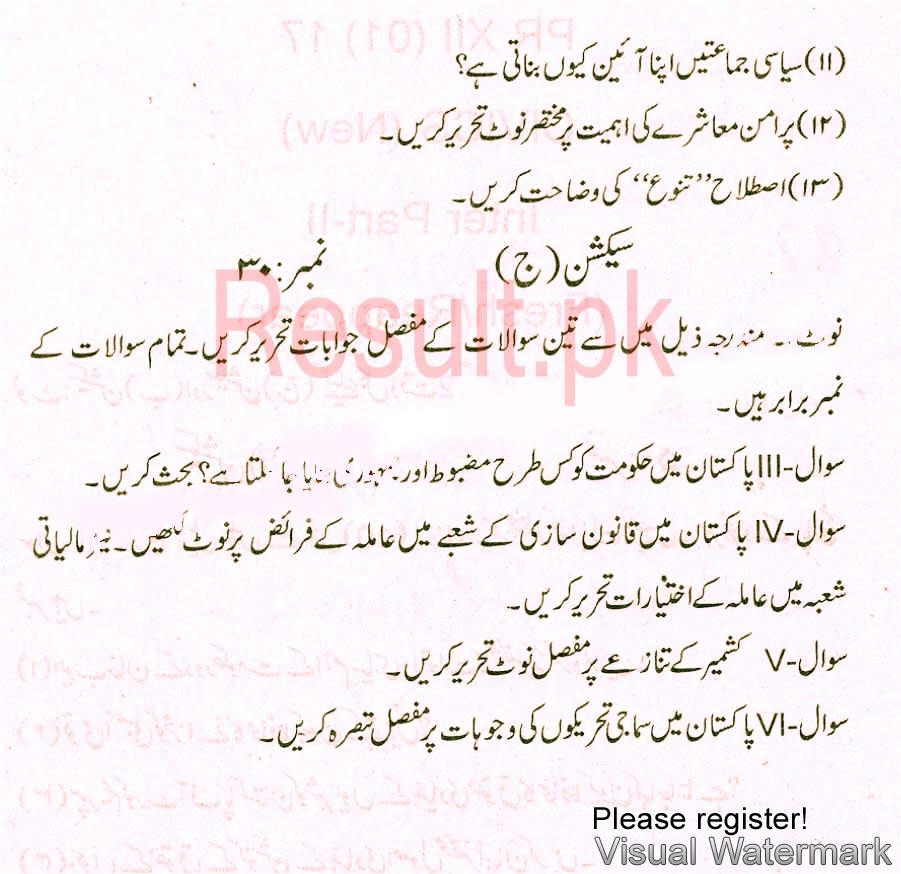 (۱۱) سیاسی جماعتیں اپنا آئین کیوں بناتی ہے؟
(۱۲) پرامن معاشرے کی اہمیت پر مختصر نوٹ تحریر کریں۔
(۱۳) اصطلاح ’’تنوع‘‘ کی وضاحت کریں۔
سیکشن (ج) نمبر: ۳۰
Result.pk
نوٹ ۔ مندرجہ ذیل میں سے تین سوالات کے مفصل جوابات تحریر کریں۔ تمام سوالات کے
نمبر برابر ہیں۔
سوال-III پاکستان میں حکومت کو کس طرح مضبوط اور جمہوری بنایا جا سکتا ہے؟ بحث کریں۔
سوال-IV پاکستان میں قانون سازی کے شعبے میں عاملہ کے فرائض پر نوٹ لکھیں۔ نیز مالیاتی
شعبہ میں عاملہ کے اختیارات تحریر کریں۔
سوال-V کشمیر کے تنازعے پر مفصل نوٹ تحریر کریں۔
سوال-VI پاکستان میں سماجی تحریکوں کی وجوہات پر مفصل تبصرہ کریں۔
Please register!
Visual Watermark